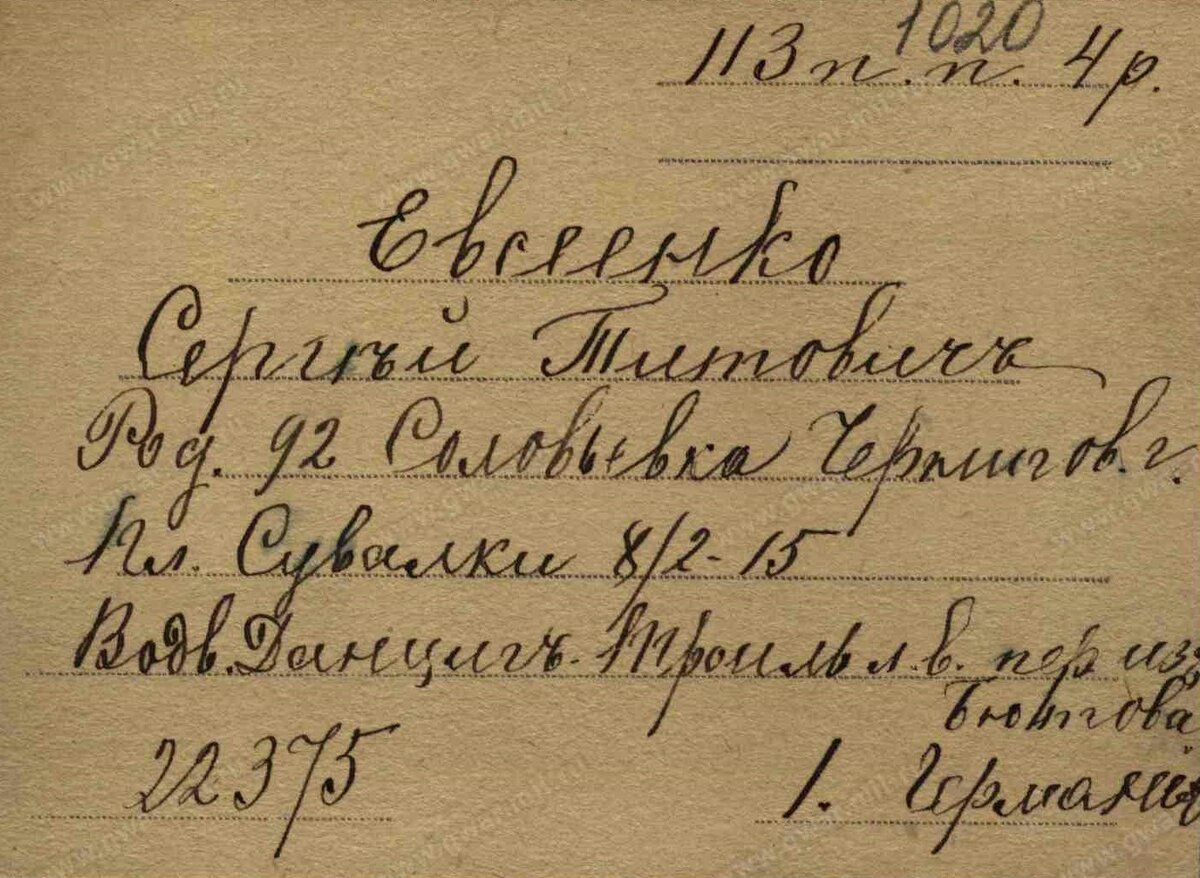 1020
113 п. п. 4 р.
Евсеенко
Сергѣй Титовичъ
Род. 92 Соловьевка Чернигов. г.
Пл. Сувалки 8/2-15
Водв. Данцигъ. Троиль л. в. пер из
Бютова
22375
1. Германия
www.gwar.mil.ru